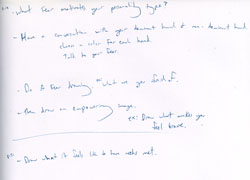 what fear motivates your personality type?
- Have a conversation with your dominant hand & non-dominant hand
color for each hand.
talk to your fear.
- Do A Fear drawing. what are you afraid of.
- then draw an empowering image.
ex: Draw what makes you
feel brave.
- Draw what it feels like to have needs met.